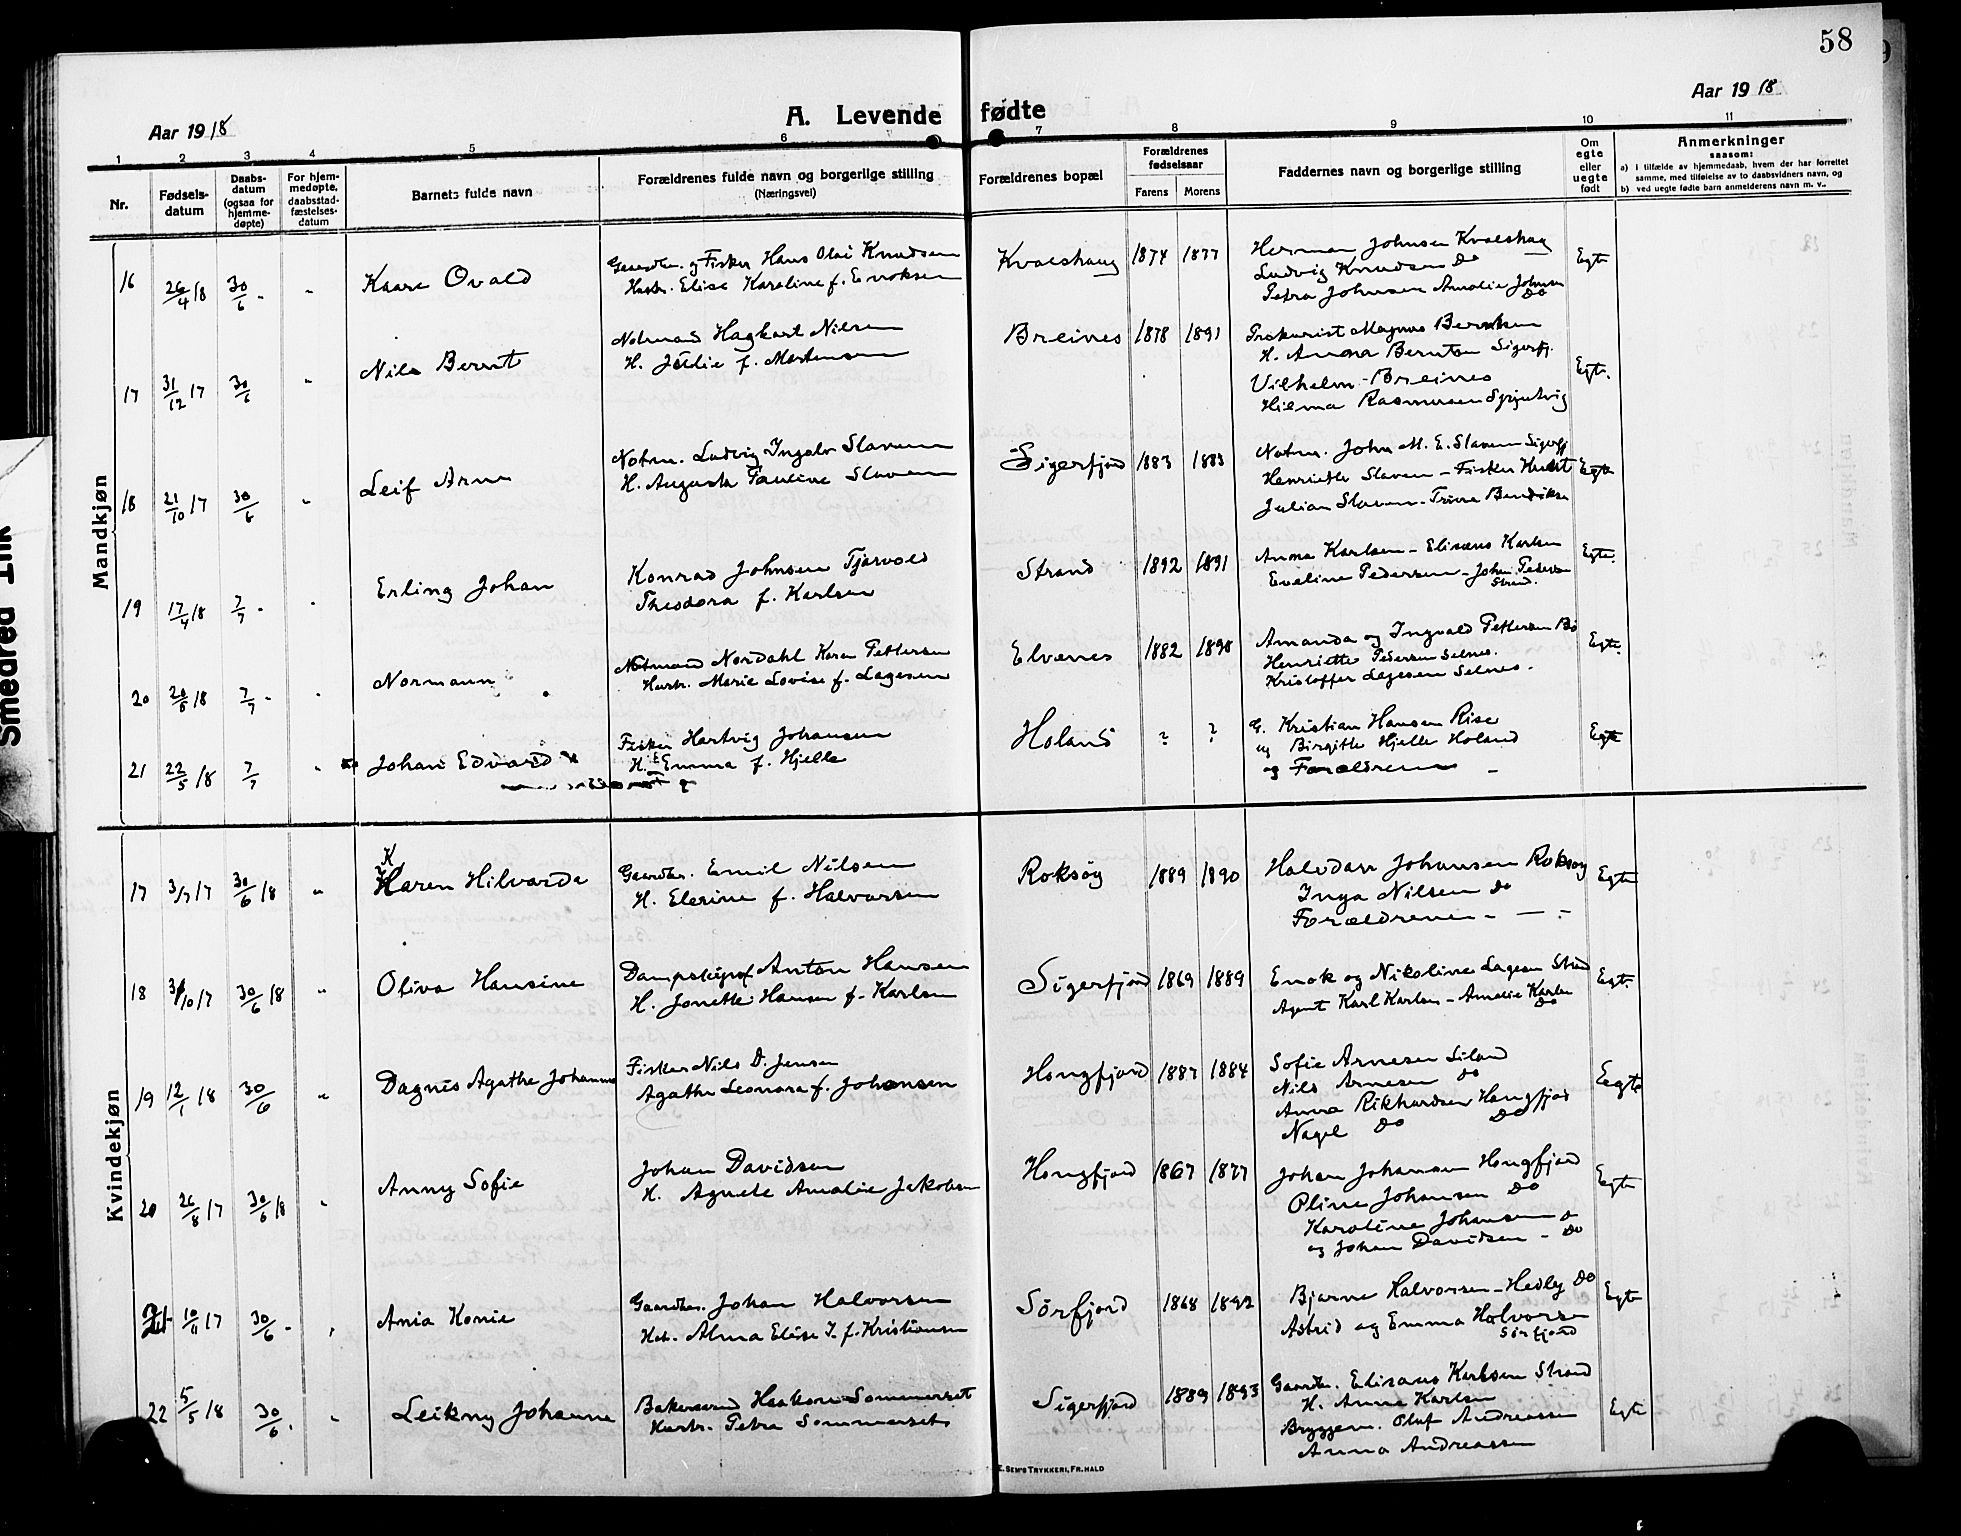 58
Aar 1918
A. Levende fødte
Aar 1918
1 2 3 4 5 6 7 8 9 10 11
Nr.
Fødsels-
datum
Daabs-
datum
(ogsaa for
hjemme-
døpte)
For hjem-
medøpte,
daabsstad-
fæstelses-
datum
Barnets fulde navn
Forældrenes fulde navn og borgerlige stilling
(Næringsvei)
Forældrenes bopæl
Forældrenes
fødselsaar
Farens Morens
Faddernes navn og borgerlige stilling
Om
egte
eller
uegte
født
Anmerkninger
saasom:
a) i tilfælde av hjemmedaab, hvem der har forrettet
samme, med tilføielse av to daabsvidners navn, og
b) ved uegte fødte barn anmelderens navn m. v..
Mandkjøn
16 26/4 18 30/6 - " Kaare Ovald
Gaardbr. og Fisker Hans Olai Knudsen
Hustr. Elise Karoline f. Enoksen
Kvaeshaug 1874 1877
Herman Johnsen Kvaeshaug
Ludvig Knudsen Do
Petra Johnsen Amalie Johnsen
Do
Egte
17 31/12 17 30/6 " Nils Bernt
Notmand Hagbart Nilsen
H. Julie f. Mortensen
Breines 1878 1891
Prokurist Magnus Berntsen
H. Anna Berntsen Sigerfj.
Vilhelm Breines
Hilma Rasmussen
Egte.
18 21/10 17 30/6 " Leif Arne
Notm. Ludvig Ingolv Slaven
H. Augusta Pauline Slaven
Sigerfjord 1883 1883
Notm. John M. E. Slaven Sigerfj
Henriette Slaven - Fisker
Julian Slaven - Trina Bendiksen
Egte
19 17/4 18 7/7 - " Erling Johan
Konrad Johnsen Tjørvold
Theodora f. Karlsen
Strand 1892 1891
Anna Karlsen - Elisæus Karlsen
Eveline Pedersen - Johan Pedersen
Strand.
Egte.
20 7/7 - " Normann
Notmand Nordahl Koren Pettersen
Hustr. Marie Lovise f. Lagesen
Elvenes 1882 1898
Amanda og Ingvald Pettersen Bø
Henriette Pedersen Selnes.
Kristoffer Lagesen Selnes.
Egte.
21 22/5 18 7/7 " Johan Edvard
Fisker Hartvig Johansen
H. Emma f. Hjelle
Holand ? ?
G. Kristian Hansen Rise
og Birgitte Hjelle Holand
og Forældrene -
Egte
Kvindekjøn
17 3/7 17 30/6 18 " Karen Hilvarda
Gaardbr. Emil Nilsen
H. Elerine f. Halvorsen
Roksøy 1889 1890
Halvdan Johansen Roksøy
Inga Nilsen Do
Forældrene - — -
Egte
18 31/10 17 30/6 18 " Oliva Hansine
Anton Hansen
H. Jonette Hansen f. Karlsen
Sigerfjord 1869 1889
Enok og Nikoline Lagesen Strand
Agent Karl Karlsen - Amalie Karlsen
Do
Egte.
19 12/1 18 30/6 " Dagnes Agathe Johanna
Fisker Nils D. Jensen
Agathe Leonora f. Johansen
Hongfjord 1887 1884
Sofie Arnesen Siland
Nils Arnesen Do
Anna Rikhardsen Hongfjord
Nagel Do Do
Eegte
20 26/8 17 30/6 18 " Anny Sofie
Johan Davidsen
H. Agnete Amalie Jakobsen
Hongfjord 1867 1877
Johan Johansen Hongfjord
Oline Johansen Do
Karoline Johansen
og Johan Davidsen - Do
Egte
21 10/11 17 30/6 - " Ania Konie
Gaardbr. Johan Halvorsen
Hst. Alma Elise J. f. Kristiansen
Sørfjord 1868 1892
Bjarne Halvorsen - Hedley Do
Astrid og Emma Halvorsen
Sørfjord
Egte
22 5/5 18 30/6 . " Leikny Johanne
Haakon Sommerset
Hustr. Petra Sommerset
Sigerfjord 1889 1893
Gaardbr. Elisæus Karlsen Strand
H. Anna Karlsen
Bryggem. Oluf Andreassen
Anna Andreassen
Egte
E. SEM'S TRYKKERI, FR.HALD
Smedrød Ink